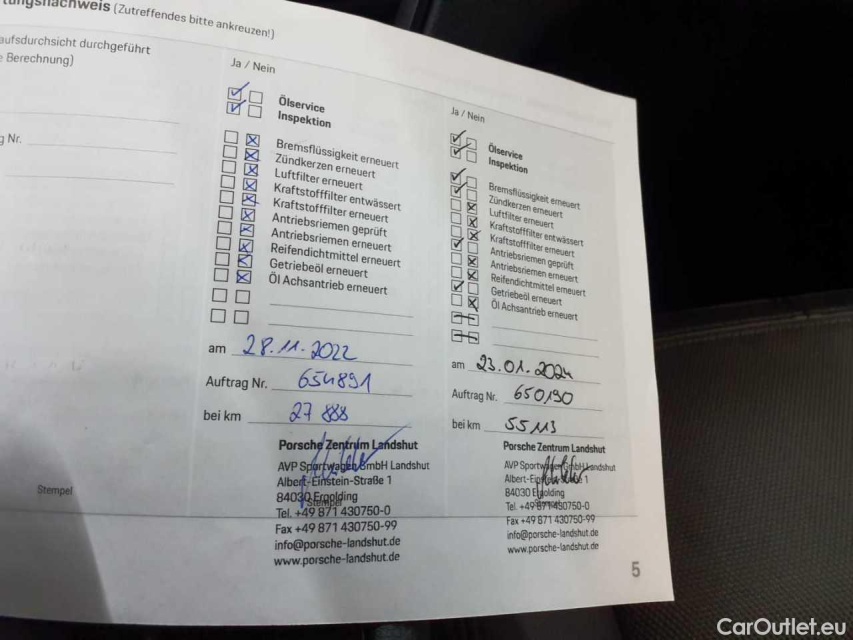 tungsnachweis (Zutreffendes bitte ankreuzen!)
aufsdurchsicht durchgeführt
e Berechnung)
g Nr.
Stempel
Ja / Nein
Ölservice
Inspektion
Bremsflüssigkeit erneuert
Zündkerzen erneuert
Luftfilter erneuert
Kraftstofffilter entwässert
Kraftstofffilter erneuert
Antriebsriemen geprüft
Antriebsriemen erneuert
Reifendichtmittel erneuert
Getriebeöl erneuert
Öl Achsantrieb erneuert
am 28.11.2022
Auftrag Nr. 654891
bei km 27 888
Porsche Zentrum Landshut
AVP Sportwagen GmbH Landshut
Albert-Einstein-Straße 1
84030 Ergolding
Stempel
Tel. +49 871 430750-0
Fax +49 871 430750-99
info@porsche-landshut.de
www.porsche-landshut.de
Ja / Nein
Ölservice
Inspektion
Bremsflüssigkeit erneuert
Zündkerzen erneuert
Luftfilter erneuert
Kraftstofffilter entwässert
Kraftstofffilter erneuert
Antriebsriemen geprüft
Antriebsriemen erneuert
Reifendichtmittel erneuert
Getriebeöl erneuert
Öl Achsantrieb erneuert
am 23.01.2024
Auftrag Nr. 650190
bei km 55113
Porsche Zentrum Landshut
AVP Sportwagen GmbH Landshut
Albert-Einstein-Straße 1
84030 Ergolding
Stempel
Tel. +49 871 430750-0
Fax +49 871 430750-99
info@porsche-landshut.de
www.porsche-landshut.de
5
CarOutlet.eu